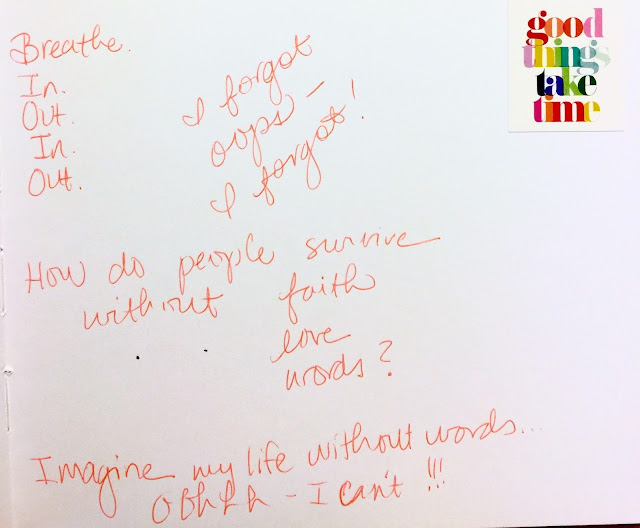 Breathe.
In.
Out.
In.
Out.
I forgot
oops –
I forgot!
good
things
take
time
How do people survive
without faith
love
words?
Imagine my life without words...
Ohhhh – I can't!!!